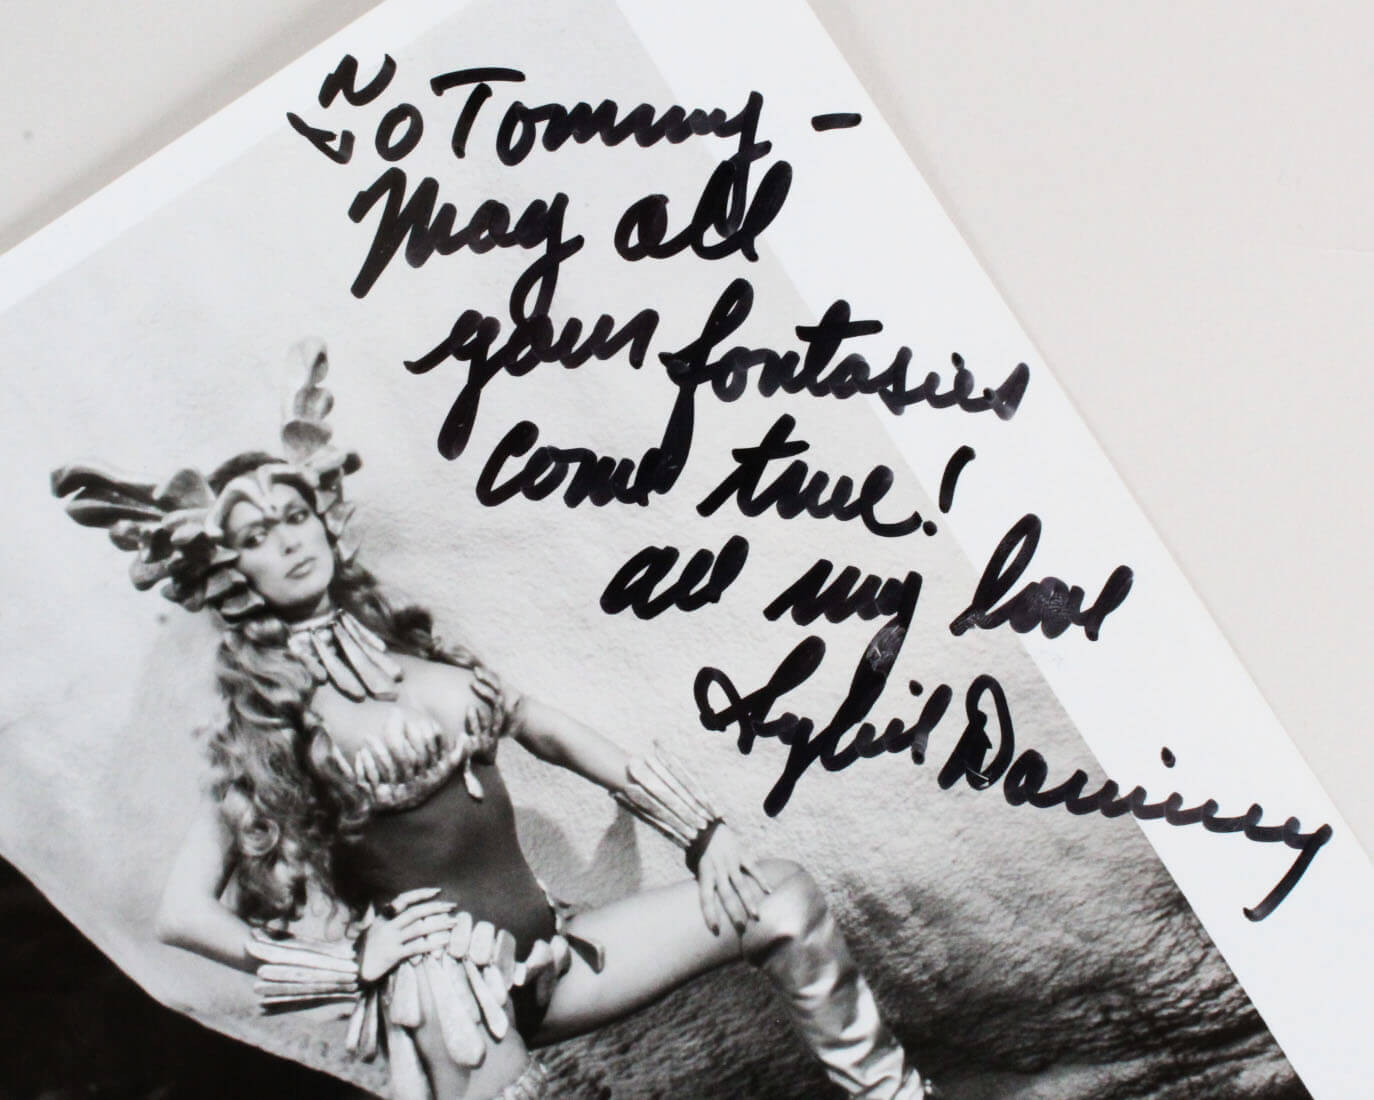 To Tommy -
May all
your fantasies
come true!
all my love
Sybil Danning